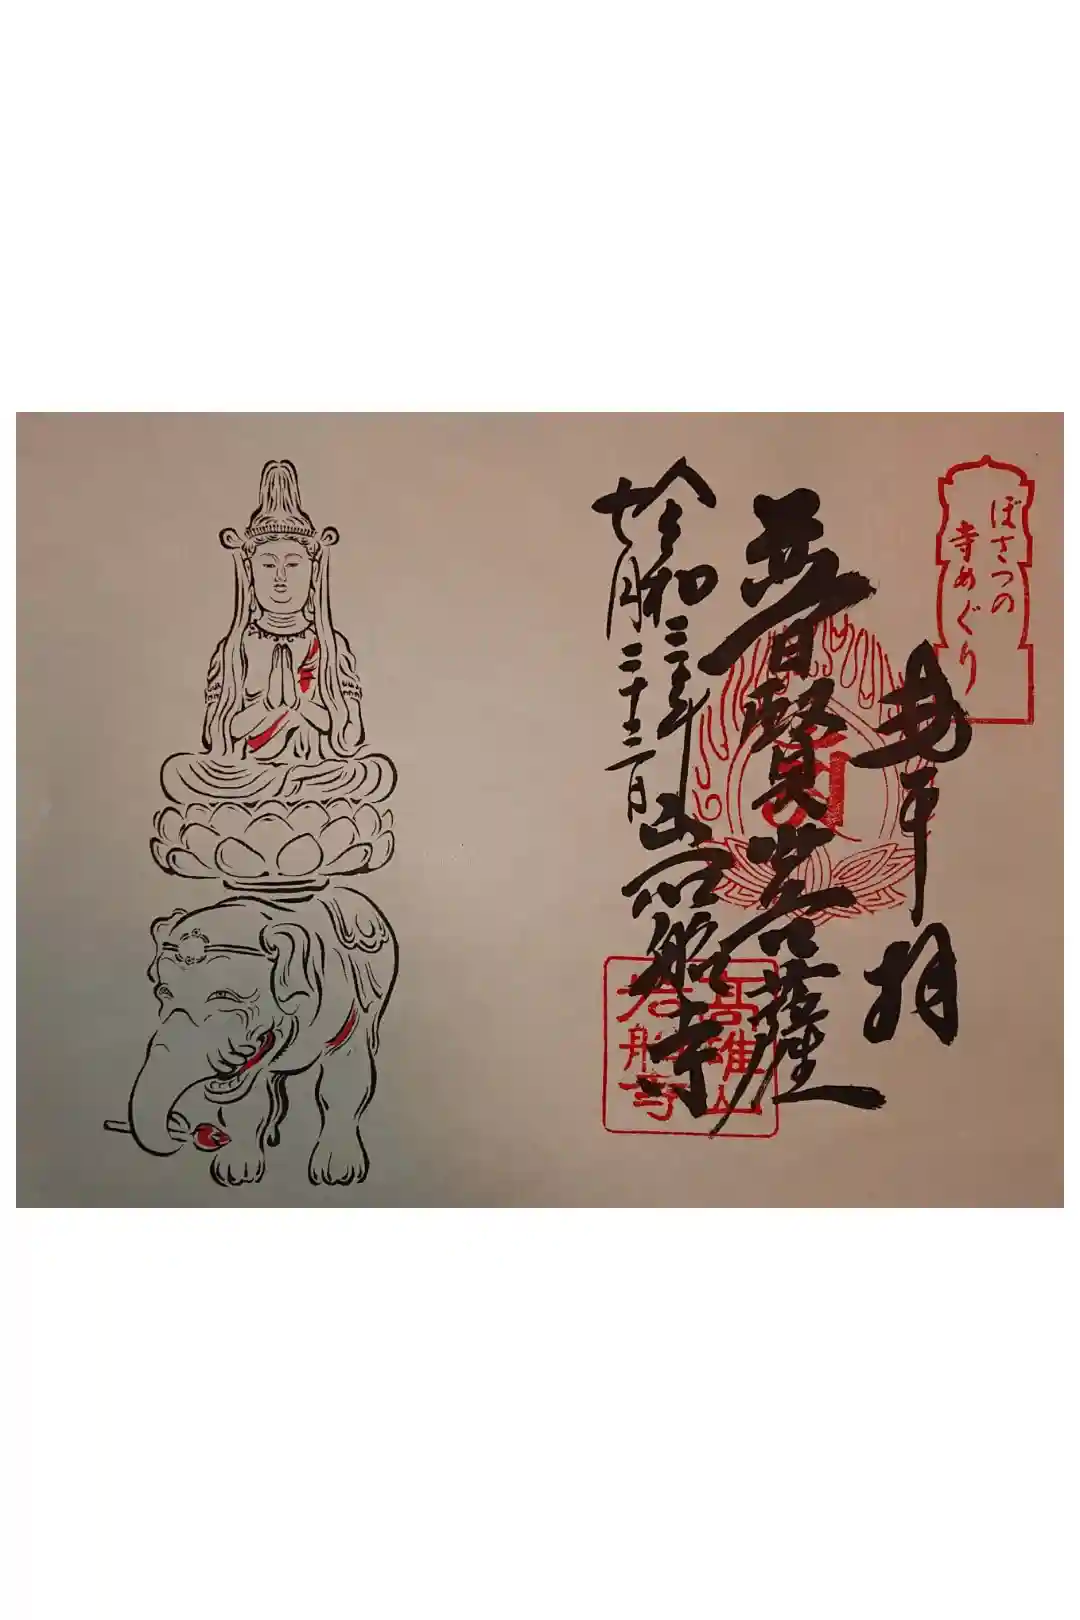 ぼさつの
寺めぐり
奉拝
普賢菩薩
岩船寺
令和三年
七月二十三日
高雄山
岩船寺